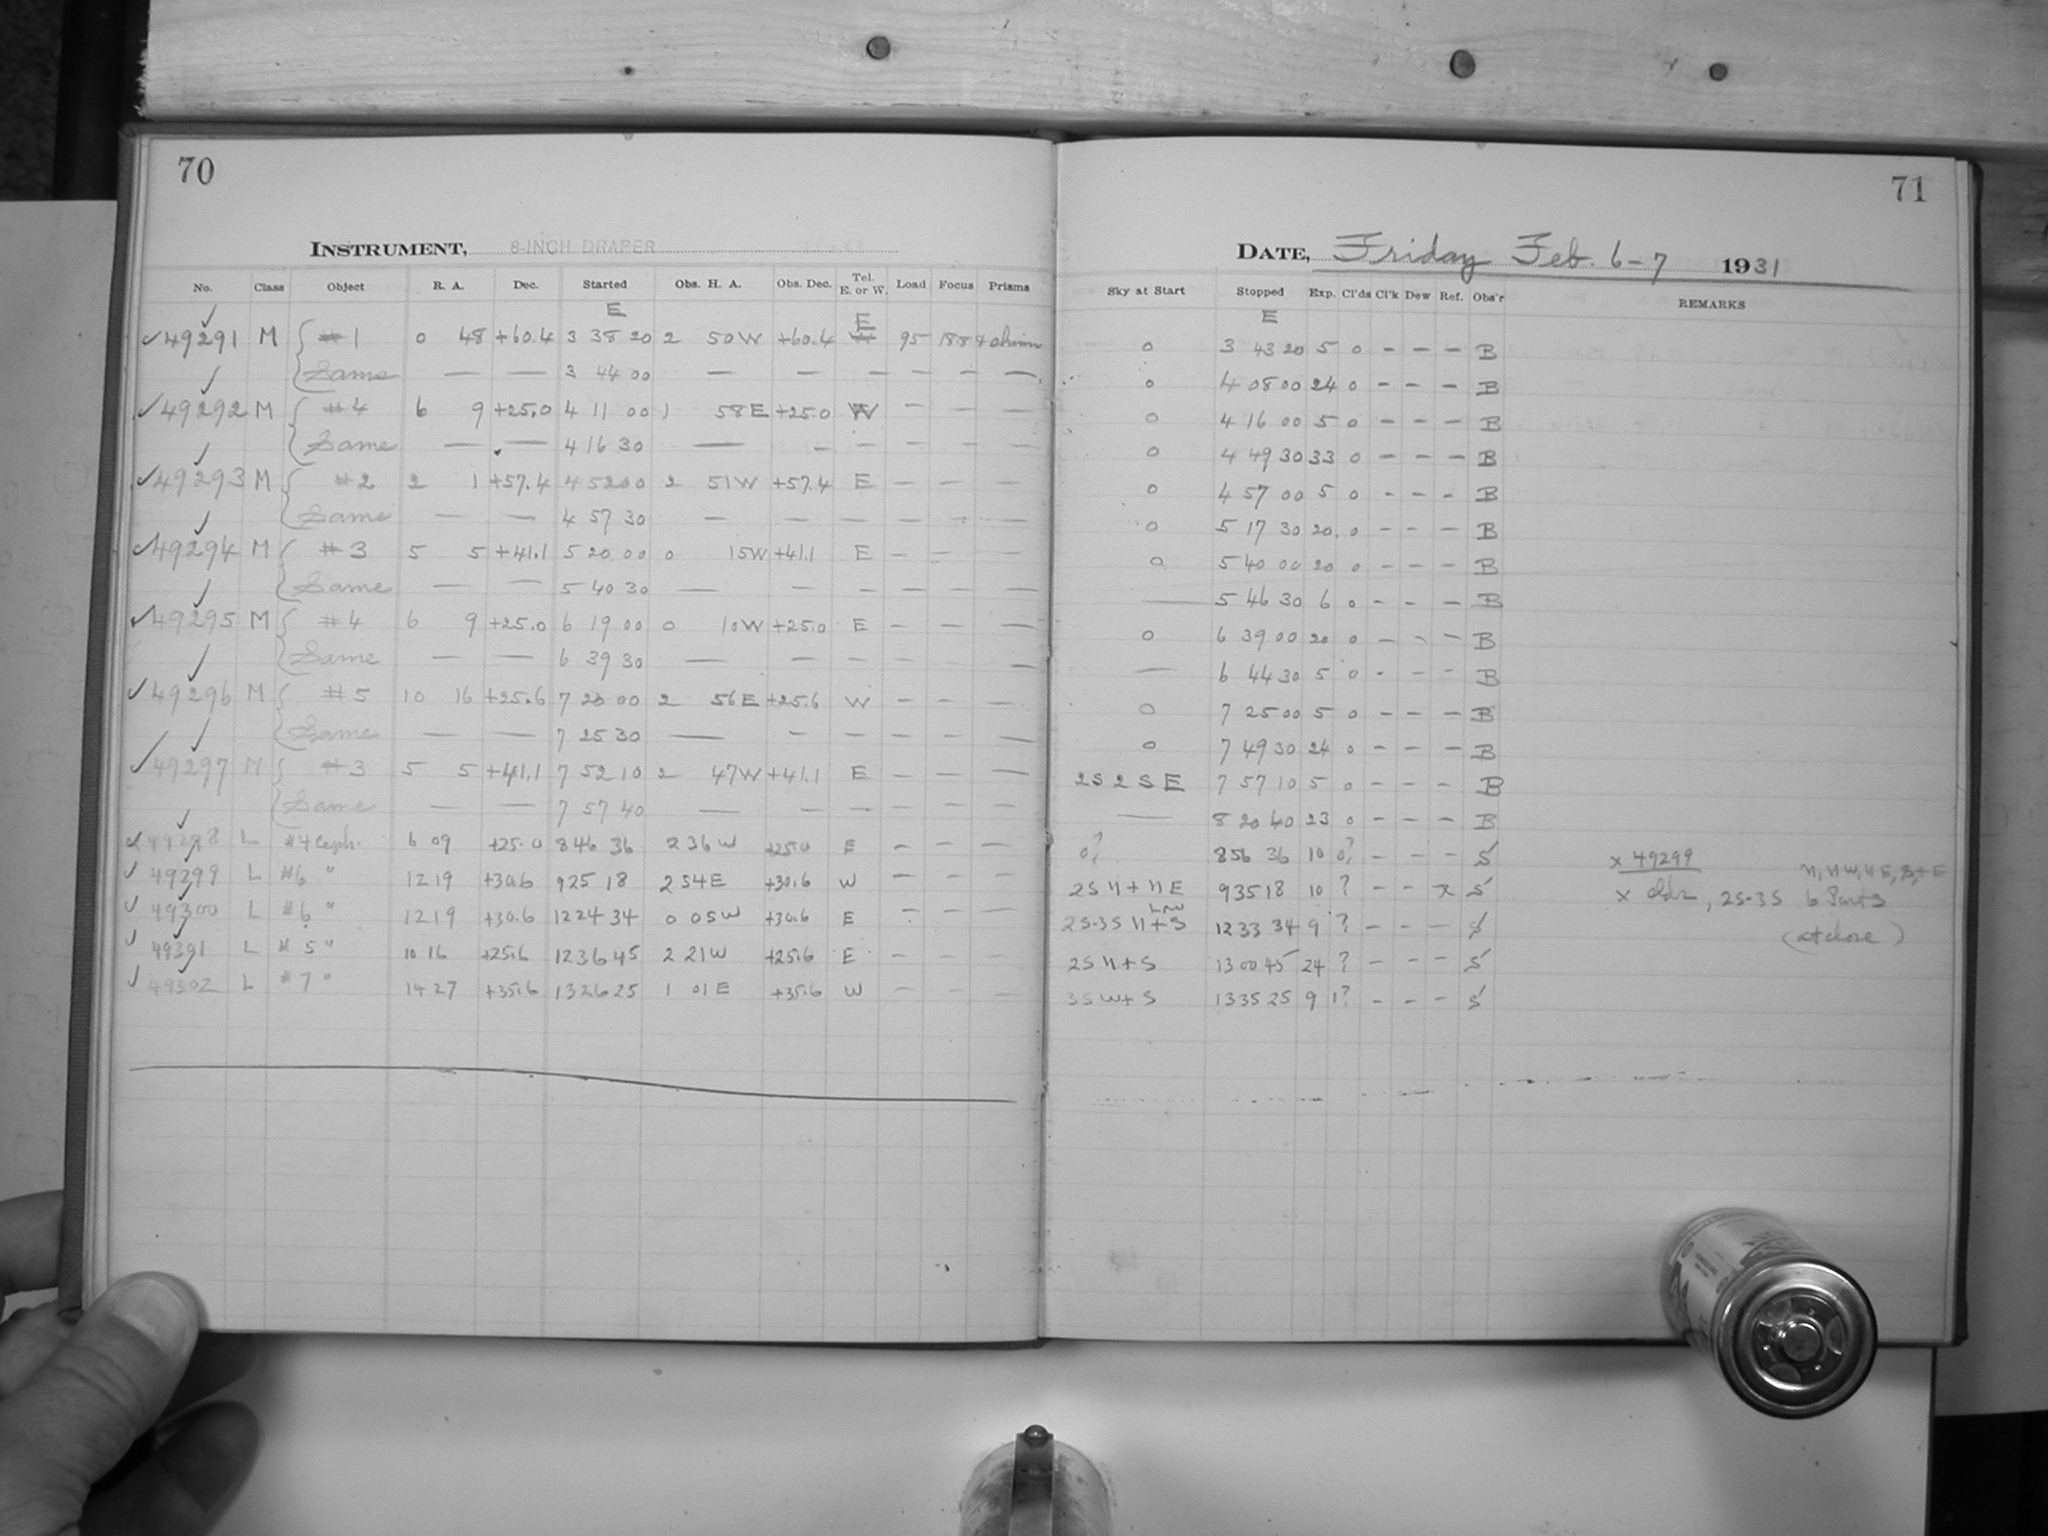 70
INSTRUMENT, 8-INCH DRAPER
No. Class Object R. A. Dec. Started Obs. H. A. Obs. Dec. Tel. E. or W. Load Focus Prisms
E
49291 M #1 0 48 +60.4 3 38 20 2 50 W +60.4 E 95 18.8
Same — — 3 44 00 — — — — — —
49292 M #4 6 9 +25.0 4 11 00 1 58 E +25.0 W — — —
Same — — 4 16 30 — — — — — —
49293 M #2 2 1 +57.4 4 52 00 2 51 W +57.4 E — — —
Same — — 4 57 30 — — — — — —
49294 M #3 5 5 +41.1 5 20 00 0 15 W +41.1 E — — —
Same — — 5 40 30 — — — — — —
49295 M #4 6 9 +25.0 6 19 00 0 10 W +25.0 E — — —
Same — — 6 39 30 — — — — — —
49296 M #5 10 16 +25.6 7 20 00 2 56 E +25.6 W — — —
Same — — 7 25 30 — — — — — —
49297 M #3 5 5 +41.1 7 52 10 2 47 W +41.1 E — — —
Same — — 7 57 40 — — — — — —
49298 L #4 Ceph. 6 09 +25.0 8 46 36 2 36 W +25.0 E — — —
49299 L #6 " 12 19 +30.6 9 25 18 2 54 E +30.6 W — — —
49300 L #6 " 12 19 +30.6 12 24 34 0 05 W +30.6 E — — —
49301 L #5 " 10 16 +25.6 12 36 45 2 21 W +25.6 E — — —
49302 L #7 " 14 27 +35.6 13 26 25 1 01 E +35.6 W — — —
71
DATE, Friday Feb. 6-7 1931
Sky at Start Stopped Exp. Cl'ds Cl'k Dew Ref. Obs'r REMARKS
E
0 3 43 20 5 0 — — — B
0 4 08 00 24 0 — — — B
0 4 16 00 5 0 — — — B
0 4 49 30 33 0 — — — B
0 4 57 00 5 0 — — — B
0 5 17 30 20 0 — — — B
0 5 40 00 20 0 — — — B
— 5 46 30 6 0 — — — B
0 6 39 00 20 0 — — — B
— 6 44 30 5 0 — — — B
0 7 25 00 5 0 — — — B
0 7 49 30 24 0 — — — B
2S 2 S E 7 57 10 5 0 — — — B
— 8 20 40 23 0 — — — B
0? 8 56 36 10 0? — — — S
2S N + NE 9 35 18 10 ? — — x S
2S-3S N + S 12 33 34 9 ? — — — S
2S N + S 13 00 45 24 ? — — — S
3S W + S 13 35 25 9 1? — — — S
x 49299
N, NW, NE, S, + E
x 2S-3S 6 Parts
(at close)